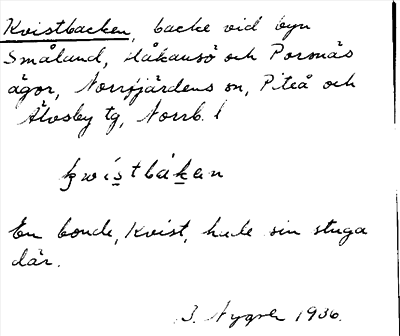 Kvistbacken, backe vid byn
Småland, Håkansö och Porsnäs
ägor, Norrfjärdens sn, Piteå och
Älvsby tg, Norrb. l
kwístbákan
En bonde, Kvist, hade sin stuga
där.
J. Nygren 1936.